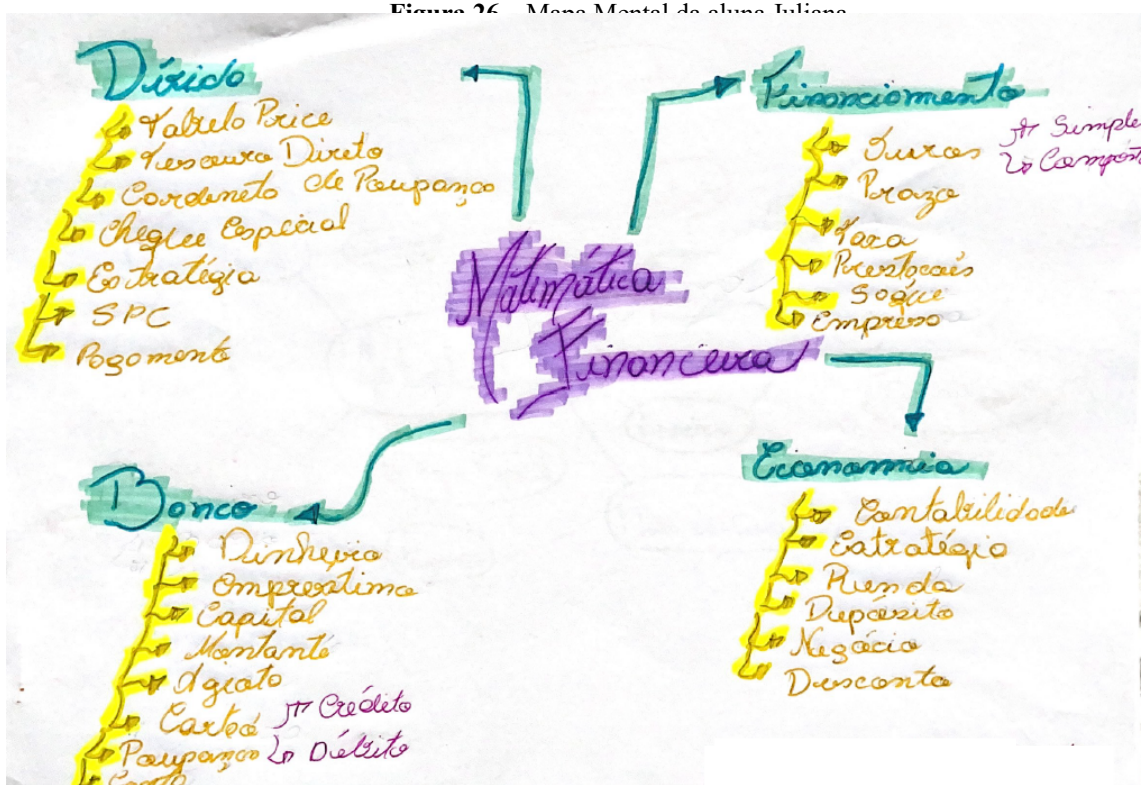 Figura 26 – Mapa Mental da aluna Juliana
Dívida
Tabela Price
Tesouro Direto
Cardeneto de Poupança
Cheque Especial
Estratégia
SPC
Pagamento
Financiamento
Juros
Simples
Compost
Prazo
Taxa
Prestações
Saque
Empresa
Matemática
Financeira
Banco
Dinheiro
Emprestimo
Capital
Montante
Agiota
Cartão
Crédito
Débito
Poupança
Conta
Economia
Contabilidade
Estratégia
Renda
Depósito
Negócio
Desconto